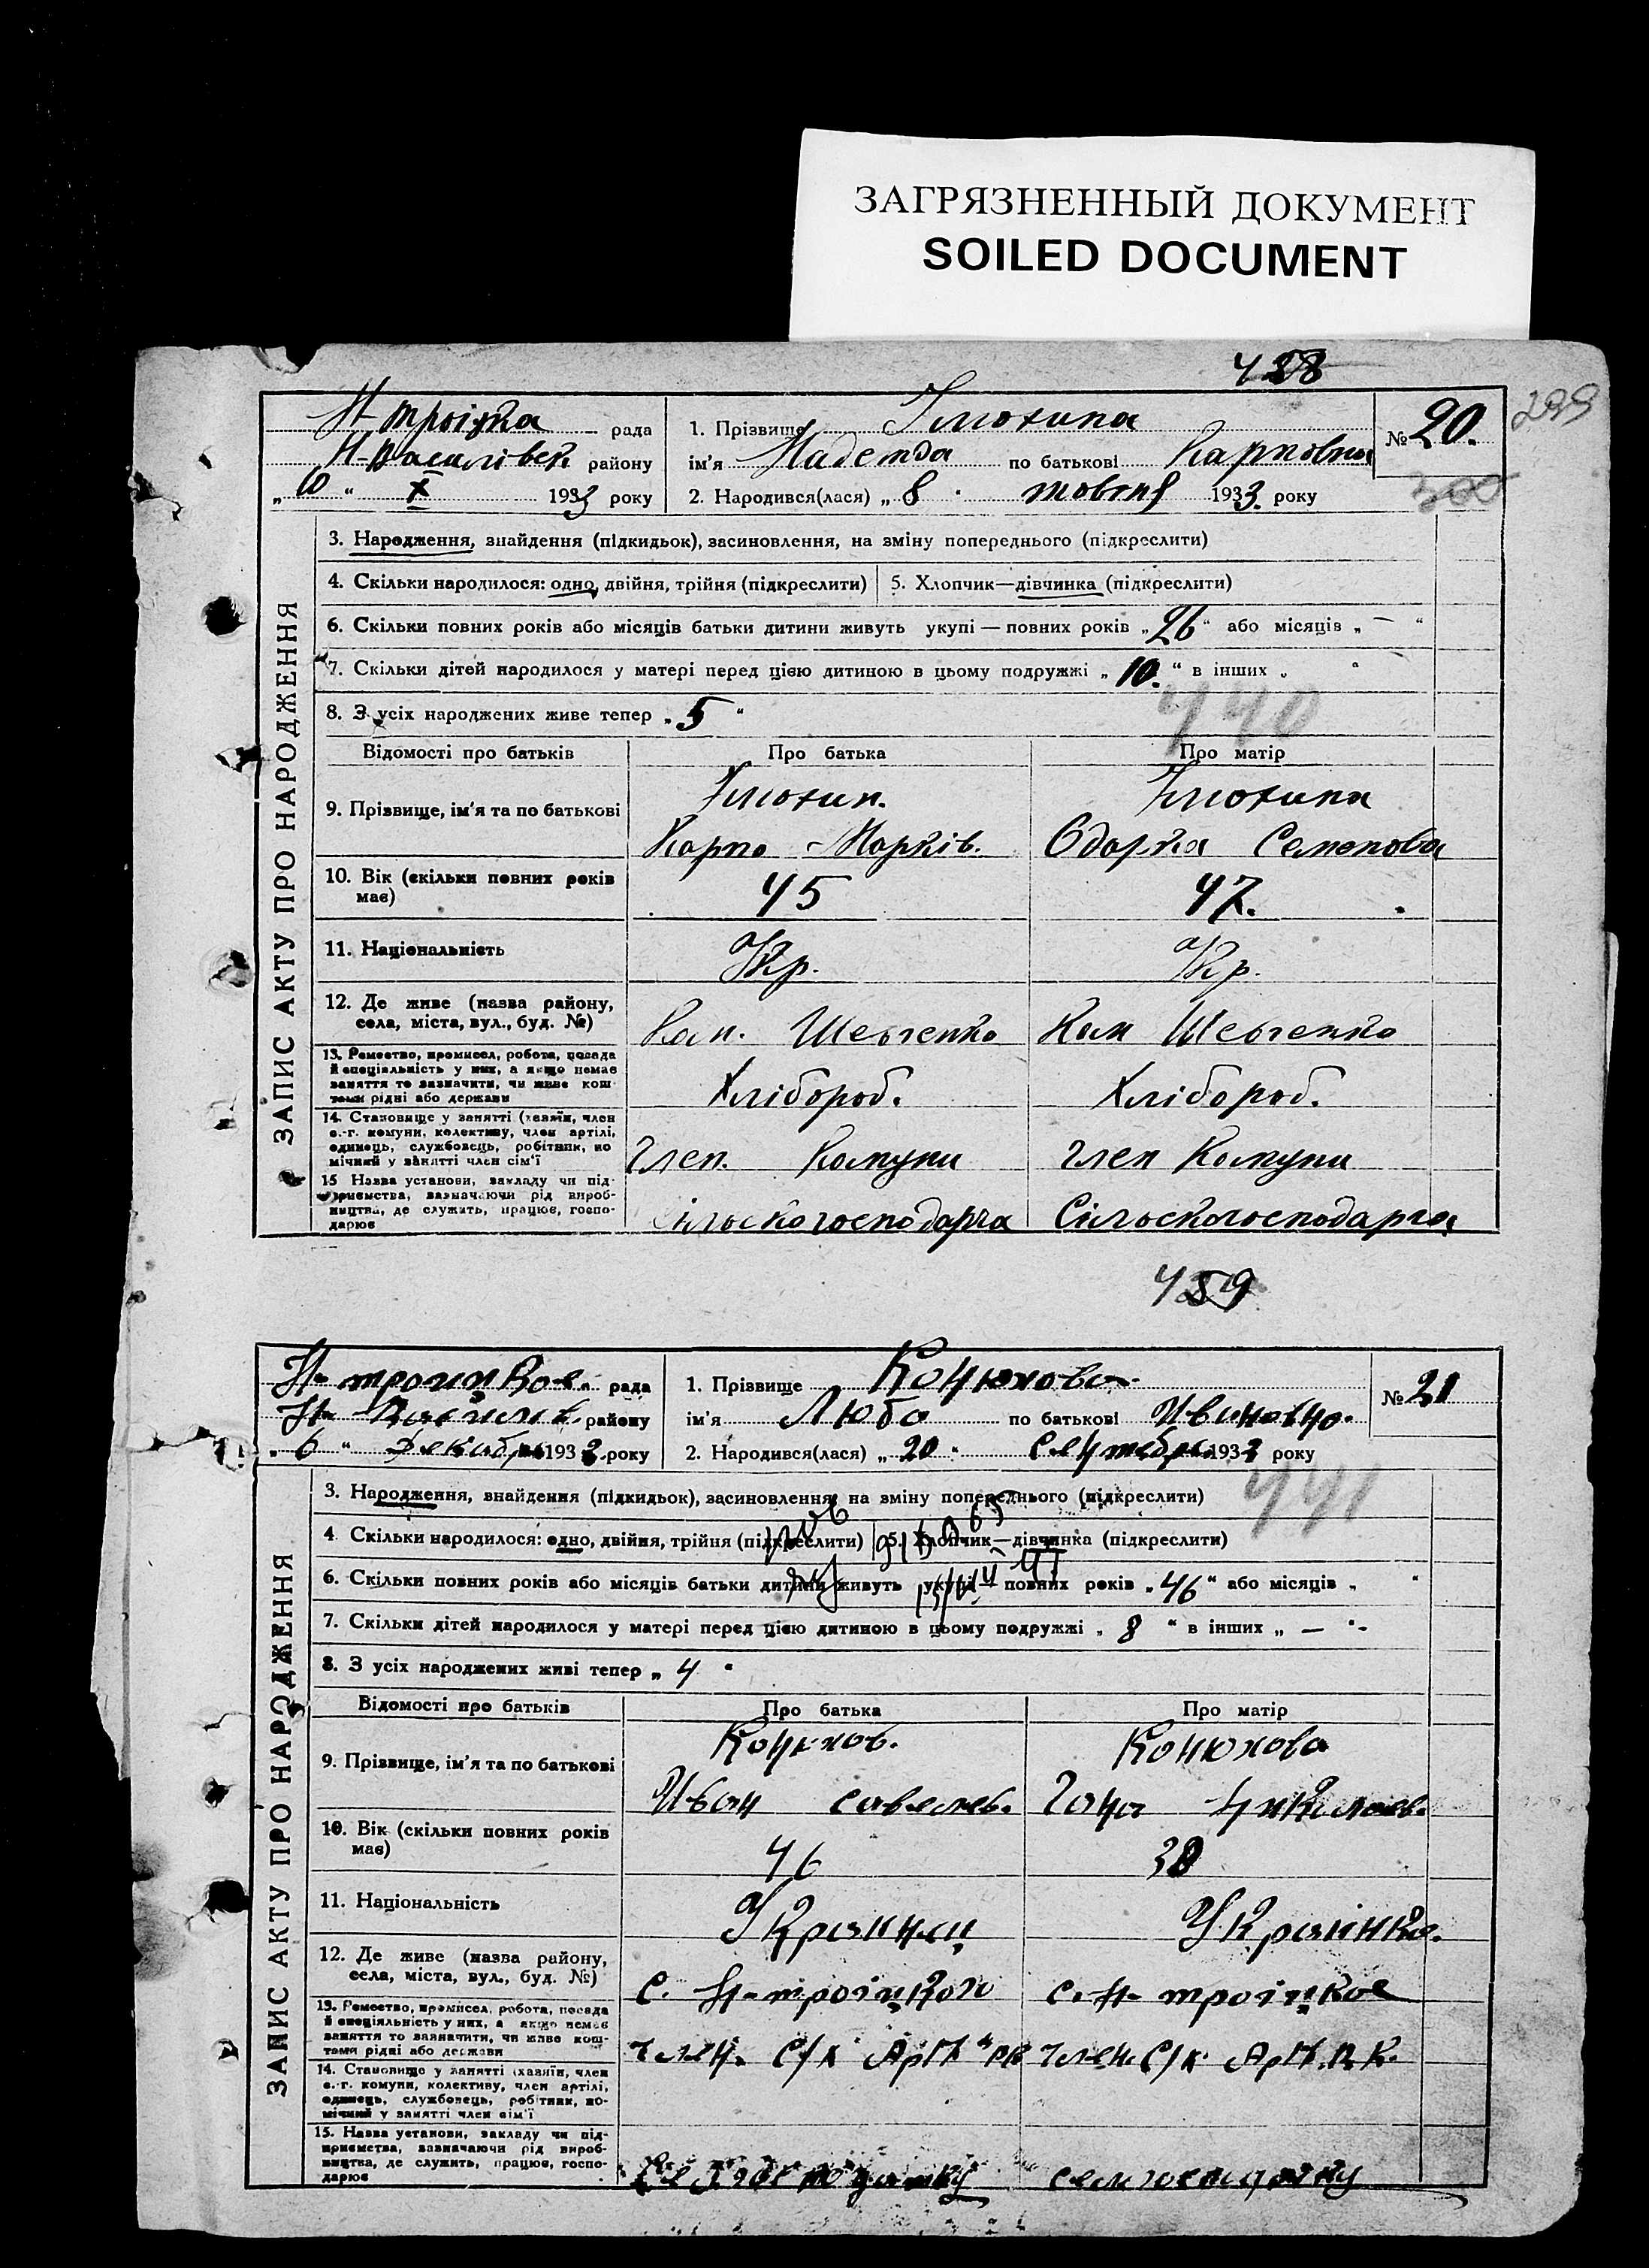 ЗАГРЯЗНЕННЫЙ ДОКУМЕНТ
SOILED DOCUMENT
299
Н-троіцка рада
Н-Василівськ району
„10“ X 1933 року
1. Прізвище
ім'я Надежда по батькові Карповна
2. Народився(лася) „8“ жовтня 1933 року
№ 20.
300
ЗАПИС АКТУ ПРО НАРОДЖЕННЯ
3. Народження, знайдення (підкидьок), засиновлення, на зміну попереднього (підкреслити)
4. Скільки народилося: одно, двійня, трійня (підкреслити) 5. Хлопчик—дівчинка (підкреслити)
6. Скільки повних років або місяців батьки дитини живуть укупі — повних років „26“ або місяців „ — “
7. Скільки дітей народилося у матері перед цією дитиною в цьому подружжі „10.“ в інших „ “
8. З усіх народжених живе тепер „5“
440
Відомості про батьків Про батька Про матір
9. Прізвище, ім'я та по батькові
Карпо Марків. Одарка Семенова
10. Вік (скільки повних років має) 45 47.
11. Національність Укр. Укр.
12. Де живе (назва району, села, міста, вул., буд. №) Ком. Шевченко Ком Шевченко
13. Ремество, промисел, робота, посада й спеціяльність у них, а якщо немає заняття то зазначити, чи живе коштами рідні або держави Хлібороб. Хлібороб.
14. Становище у занятті (хазяїн, член с.-г. комуни, колективу, член артілі, одинець, службовець, робітник, помічний у занятті член сім'ї Член. Комуни член Комуни
15 Назва установи, закладу чи підприємства, зазначаючи рід виробництва, де служить, працює, господарює Сільскогосподарча Сільскогосподарча
Н-троицкое рада
Н- району
„6“ Декабря 1933 року
1. Прізвище Конюхова
ім'я Люба по батькові Ивановно.
2. Народився(лася) „20“ Сентебря 1933 року
№ 21
441
ЗАПИС АКТУ ПРО НАРОДЖЕННЯ
3. Народження, знайдення (підкидьок), засиновлення, на зміну попереднього (підкреслити)
4. Скільки народилося: одно, двійня, трійня (підкреслити) 5. Хлопчик—дівчинка (підкреслити)
6. Скільки повних років або місяців батьки дитини живуть укупі — повних років „46“ або місяців „ “
7. Скільки дітей народилося у матері перед цією дитиною в цьому подружжі „8“ в інших „ — “
8. З усіх народжених живі тепер „4“
Відомості про батьків Про батька Про матір
9. Прізвище, ім'я та по батькові Конюхов. Конюхова
Иван савелев.
10. Вік (скільки повних років має) 46 38
11. Національність Украинец Украінка.
12. Де живе (назва району, села, міста, вул., буд. №) С. Н-троіцкого С. Н- троіцкое
13. Ремество, промисел, робота, посада й спеціяльність у них, а якщо немає заняття то зазначити, чи живе коштами рідні або держави член. С/х Арт. член. С/х. Арт.
14. Становище у занятті (хазяїн, член с.-г. комуни, колективу, член артілі, одинець, службовець, робітник, помічний у занятті член сім'ї
15. Назва установи, закладу чи підприємства, зазначаючи рід виробництва, де служить, працює, господарює